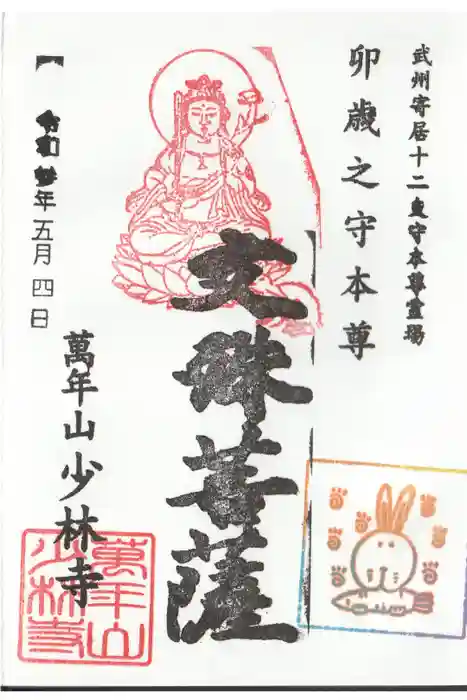 武州寄居十二支守本尊霊場
卯歳之守本尊
文殊菩薩
萬年山少林寺
年五月四日
萬年山
少林寺